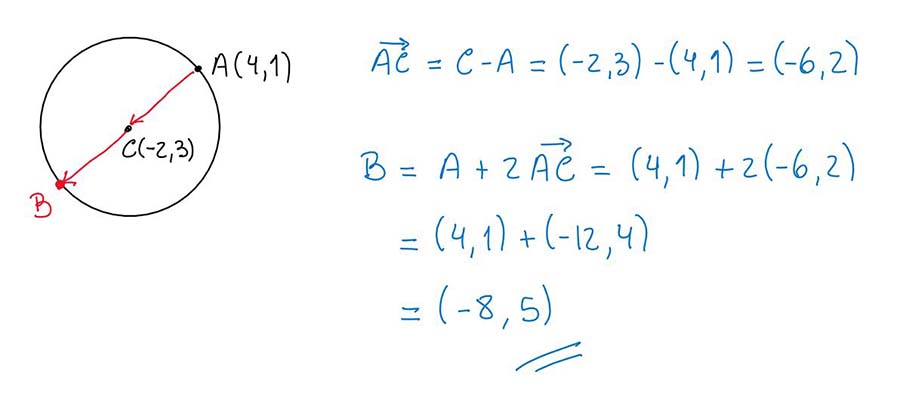 A(4,1)
C(-2,3)
B
AC⃗ = C-A = (-2,3)-(4,1) = (-6,2)
B = A + 2AC⃗ = (4,1)+2(-6,2)
= (4,1)+(-12,4)
= (-8,5)